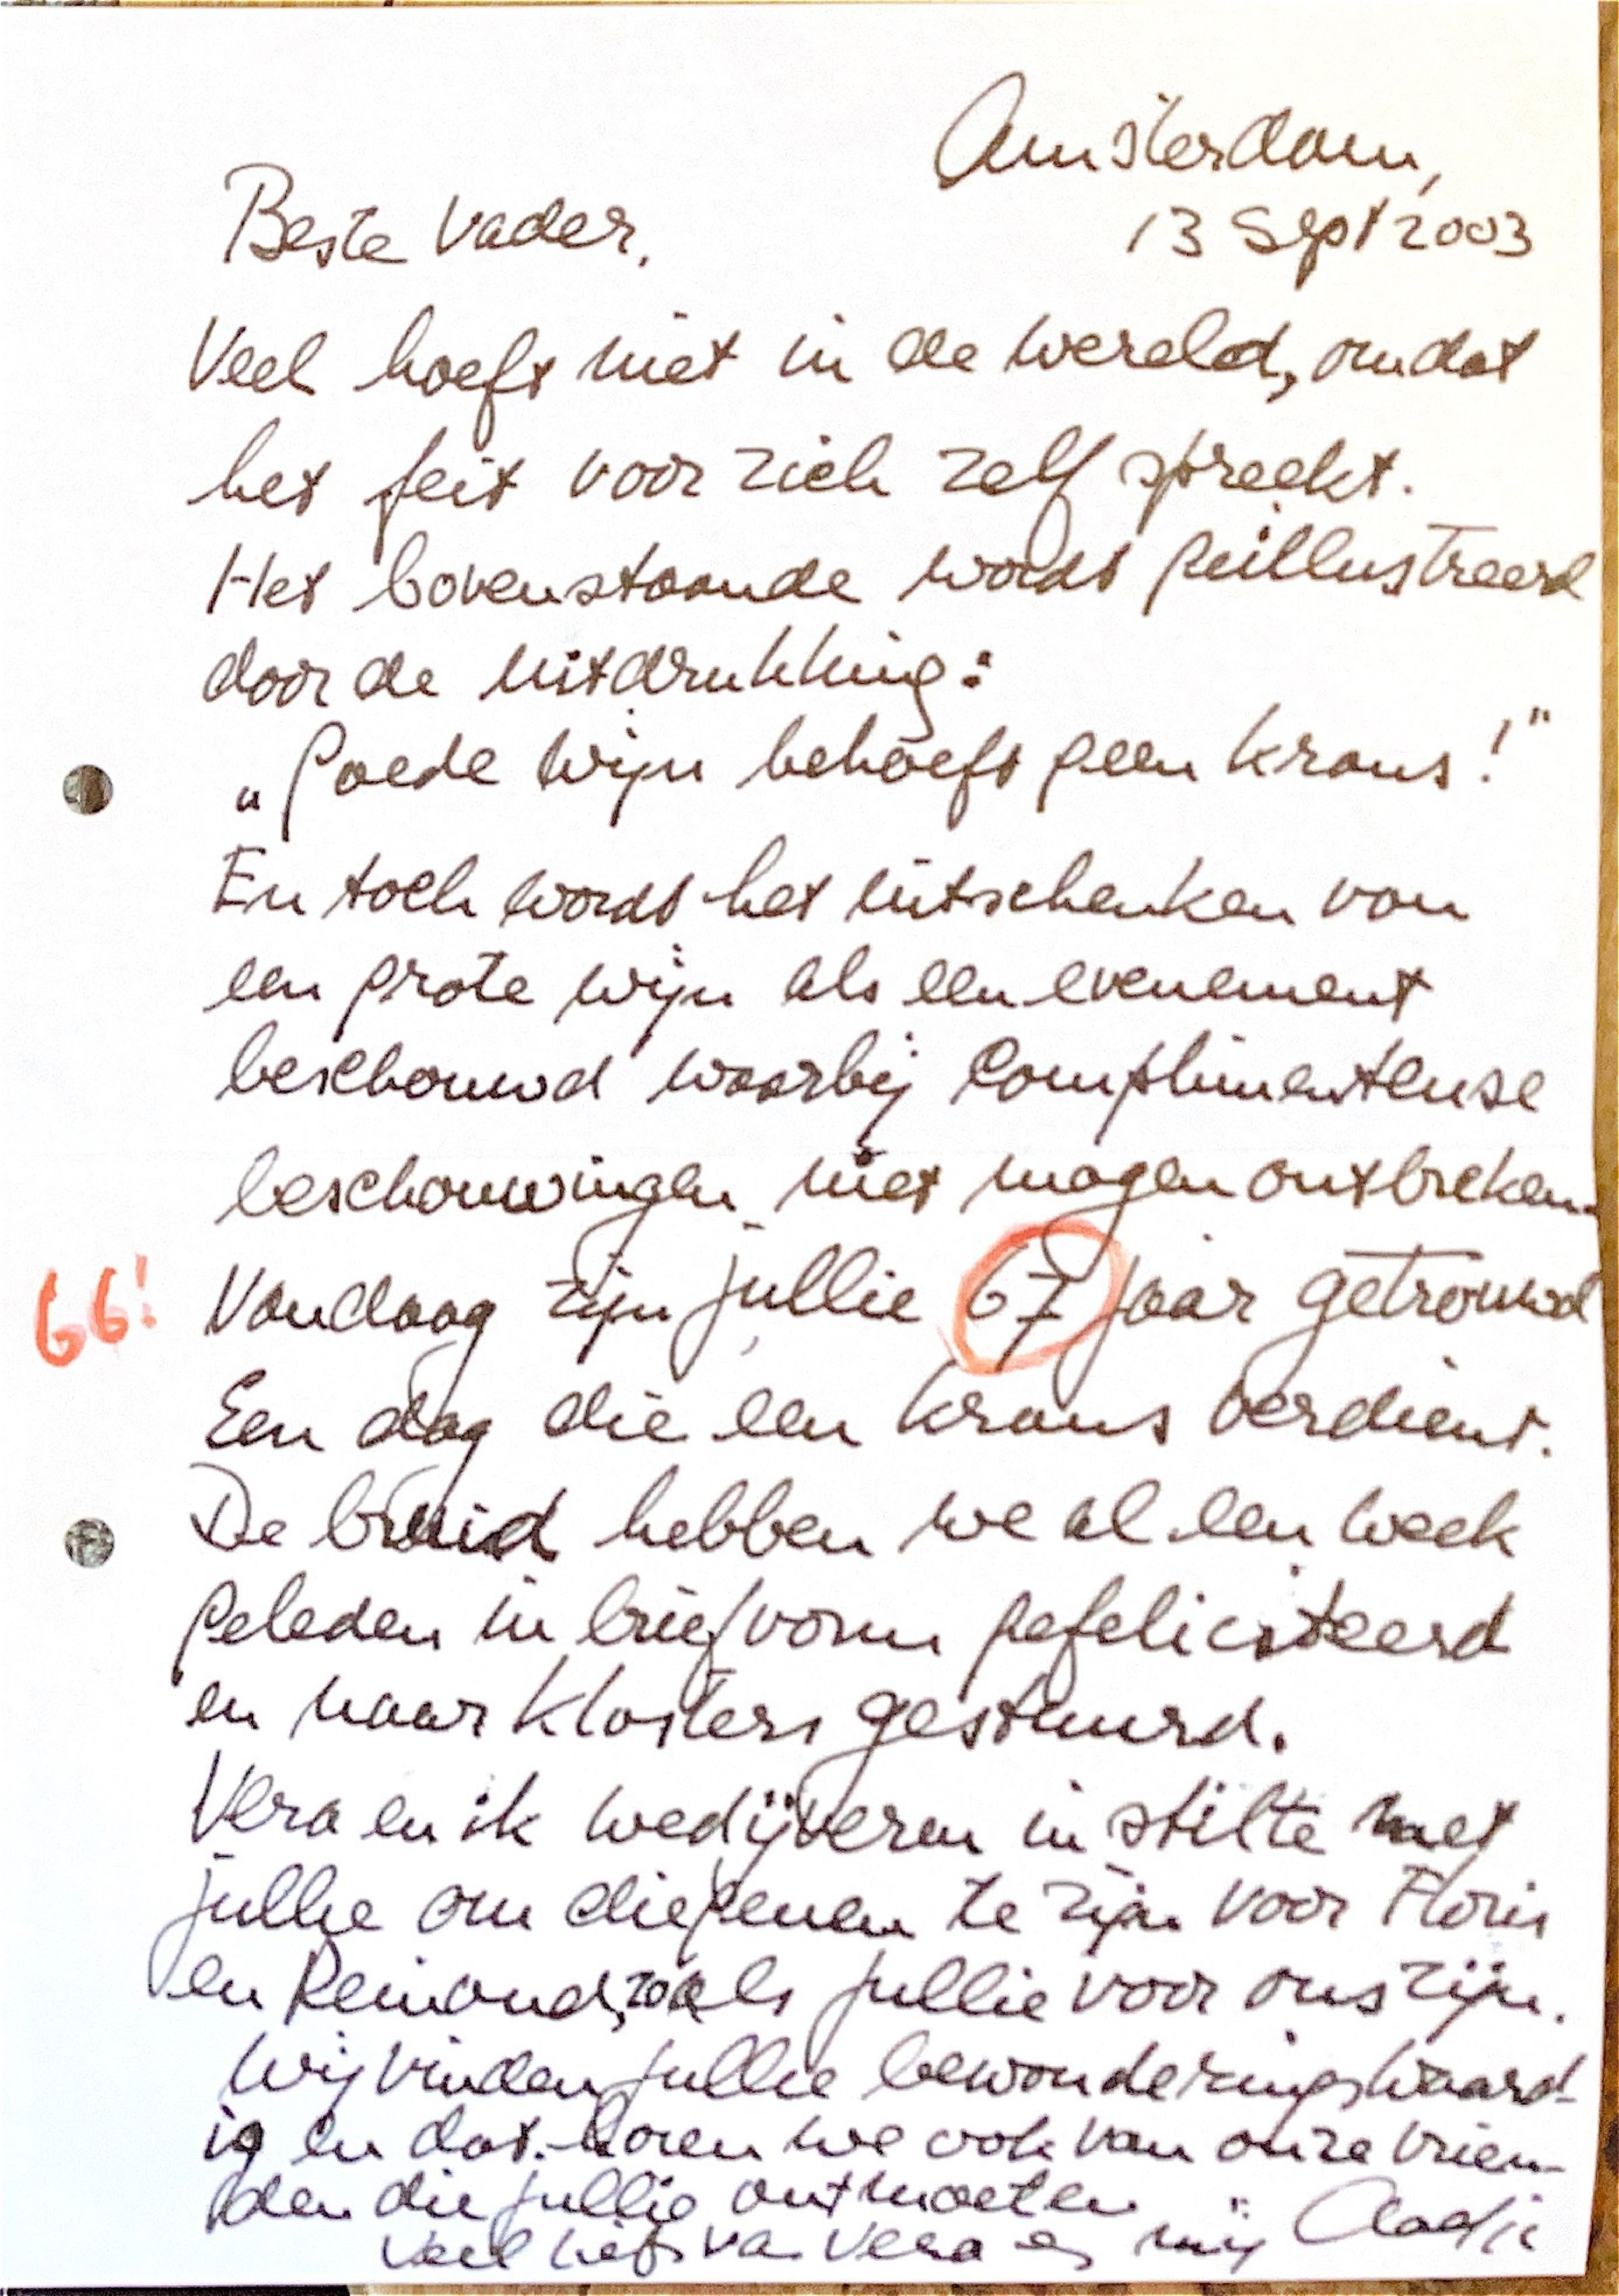 Amsterdam,
13 Sept 2003
Beste Vader.
Veel hoeft niet in de wereld, omdat
het feit voor zich zelf spreekt.
Het bovenstaande wordt geillustreerd
door de uitdrukking:
„Goede wijn behoeft geen krans!"
En toch wordt het uitschenken van
een grote wijn als een evenement
beschouwd waarbij complimenteuse
beschouwingen niet mogen ontbreken.
66! Vandaag zijn jullie 67 jaar getrouwd
Een dag die een krans verdient.
De bruid hebben we al een week
geleden in briefvorm gefeliciteerd
en naar Klosters gestuurd.
Vera en ik wedijveren in stilte met
jullie om diegenen te zijn voor Floris
en Reinoud, zoals jullie voor ons zijn.
Wij vinden jullie bewonderingswaard-
ig en dat horen we ook van onze vrien-
den die jullie ontmoeten
Veel liefs va Vera en mij